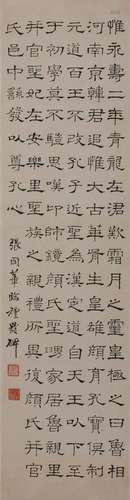 惟永壽二年青龍在涒歎霜月之靈皇極之日魯相
河南京韓君追惟太古華胥生皇雄顏育孔寶俱制
元道百王不改孔子近聖為漢定道自天王以下至
于初學莫不驥思嘆卬師鏡顏氏聖舅家居魯親里
并官聖妃在安樂里聖族之親禮所異復顏氏并官
氏邑中繇發以尊孔心
張國華臨禮器碑